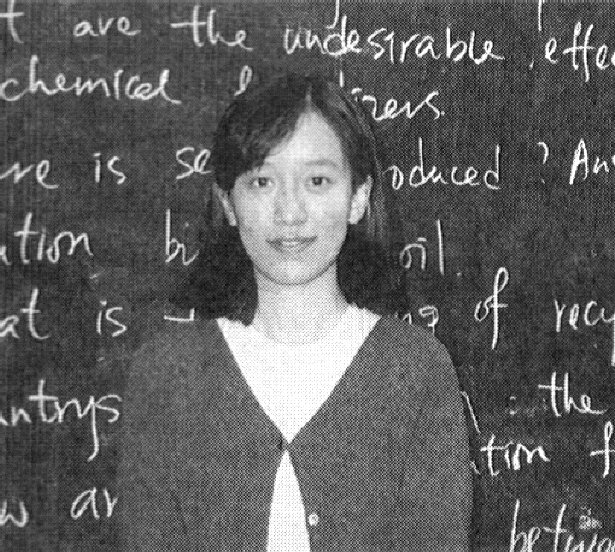 t are the undesirable effe
chemical zers.
re is se oduced ? An
tion bi oil.
at is of recy
ntrys the
tion f
w ar betwe